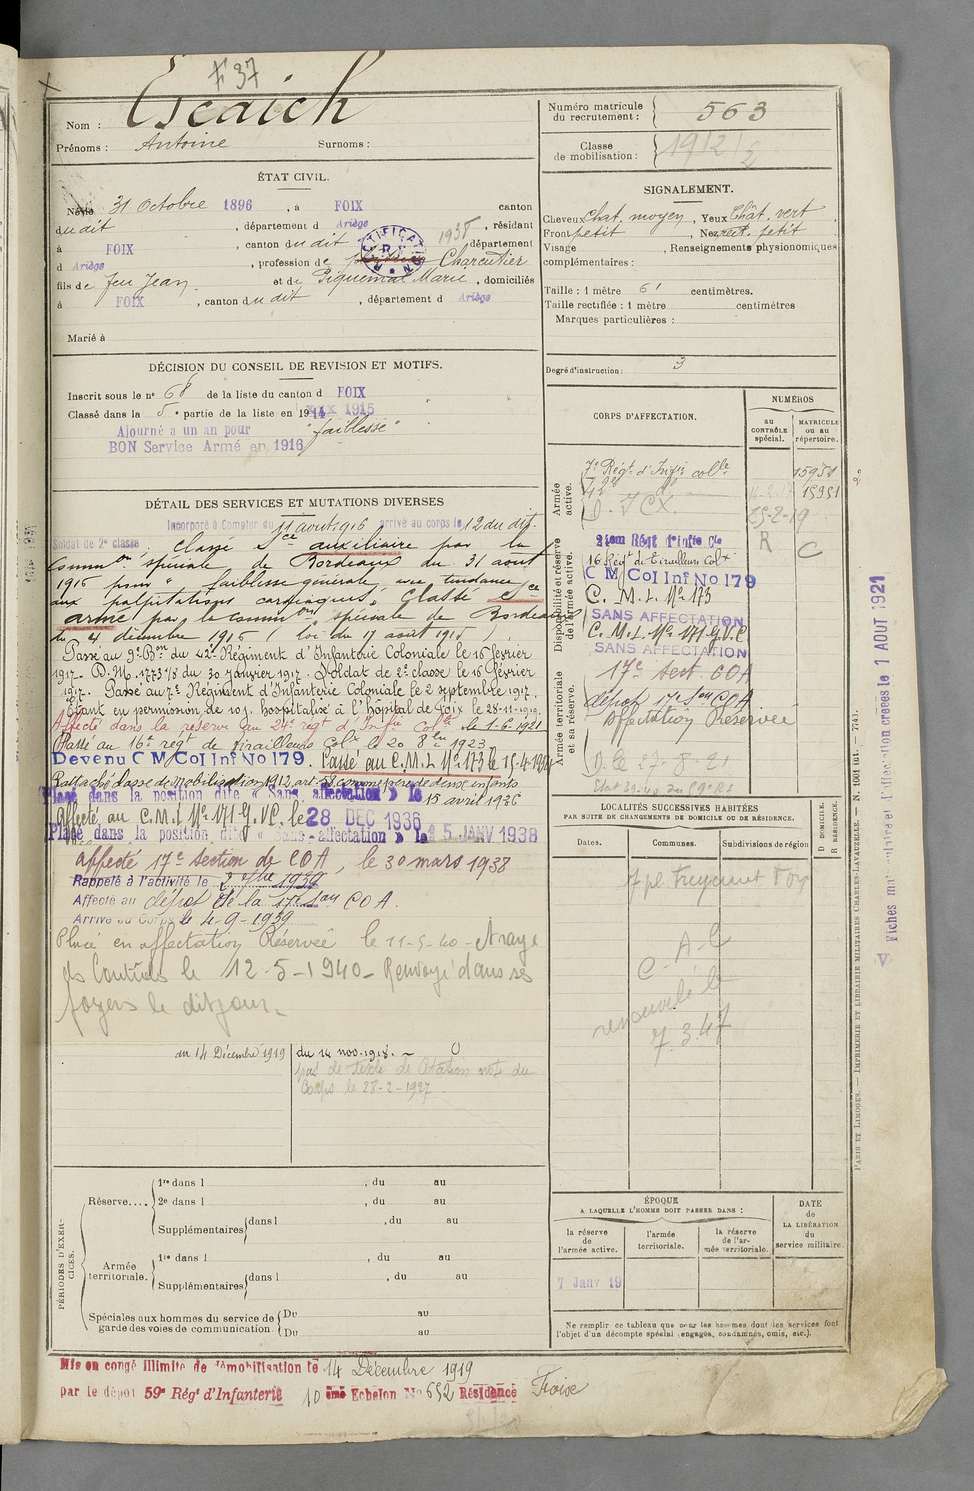 F 37
Nom : Escaich
Prénoms : Antoine Surnoms :
Numéro matricule du recrutement : 563
Classe de mobilisation : 1912
ÉTAT CIVIL.
Né le 31 Octobre 1896, à FOIX canton
du dit, département d Ariège 1938, résidant
à FOIX, canton du dit département
d Ariège, profession de Charcutier
fils de feu Jean et de Piquemal Marie, domiciliés
à FOIX, canton du dit, département d Ariège
Marié à
RECTIFICATION
SIGNALEMENT.
Cheveux Chat. moyen, Yeux Chât. vert
Front petit, Nez rect. petit
Visage , Renseignements physionomiques
complémentaires :
Taille : 1 mètre 61 centimètres.
Taille rectifiée : 1 mètre centimètres
Marques particulières :
Degré d'instruction : 3
DÉCISION DU CONSEIL DE REVISION ET MOTIFS.
Inscrit sous le n° 68 de la liste du canton d FOIX
Classé dans la 5e partie de la liste en 1915
Ajourné a un an pour "faiblesse"
BON Service Armé en 1916
DÉTAIL DES SERVICES ET MUTATIONS DIVERSES
Incorporé à Compter du 11 août 1916 arrivé au corps le 12 du dit.
Soldat de 2e classe, Classé sce auxiliaire par la
Common spéciale de Bordeaux du 31 août
1916 pour "faiblesse générale, avec tendance
aux palpitations cardiaques". Classé sce
armé par la common spéciale de Bordeaux
du 4 décembre 1916 (loi du 17 août 1915).
Passé au 9e Bon du 42e Régiment d'Infanterie Coloniale le 16 février
1917. D.M. 1773 1/8 du 30 janvier 1917. Soldat de 2e classe le 16 février
1917. Passé au 7e Régiment d'Infanterie Coloniale le 2 septembre 1917.
Étant en permission de 10 j. hospitalisé à l'hôpital de Foix le 28-11-1919.
Affecté dans la réserve au 24e regt d'Infie Colle le 1-6-1921
Passé au 16e regt de tirailleurs Colx le 20 8bre 1923
Devenu C M Col Inf No 179. Passé au C.M.I. No 173 le 15-4-19
Rattaché classe de mobilisation 1912, art. 58 comme père de deux enfants
Placé dans la position dite « Sans affectation » le 15 avril 1936
Affecté au C.M.I. No 171 G.V.C. le 28 DEC 1936
Placé dans la position dite « Sans affectation » le 15 JANV 1938
affecté 17e section de COA, le 30 mars 1938
Rappelé à l'activité le 2 7bre 1939
Affecté au dépôt de la 17e son COA.
Arrivé au Corps le 4-9-1939
Placé en affectation Réservée le 11-5-40 - Rayé
des Contrôles le 12-5-1940 - Renvoyé dans ses
foyers le dit jour.
au 14 Décembre 1919
du 14 nov. 1918.
pas de texte de Citation note du
Corps le 28-2-1927.
CORPS D'AFFECTATION.
NUMÉROS
au CONTRÔLE spécial.
MATRICULE ou au répertoire.
Armée active.
7e Régt d'Infie colle 15951
42e do 15951
D. ICX. 25-2-19
Disponibilité et réserve de l'armée active.
24em Régt d'Infie Cle R C
16 Régt de Tirailleurs Colx
C M Col Inf No 179
C. M. I. No 173
SANS AFFECTATION
C. M. I. No 171 G.V.C
SANS AFFECTATION
17e sect. COA
Armée territoriale et sa réserve.
dépôt 17e Son COA
Affectation Réservée
LOCALITÉS SUCCESSIVES HABITÉES
PAR SUITE DE CHANGEMENTS DE DOMICILE OU DE RÉSIDENCE.
Dates. Communes. Subdivisions de région
D DOMICILE. R RÉSIDENCE.
7 pl. Freycinet Foix
C. A-C
renouvelée le
7.3.47
PÉRIODES D'EXERCICES.
Réserve.... 1re dans l , du au
2e dans l , du au
Supplémentaires dans l , du au
Armée territoriale. 1re dans l , du au
Supplémentaires dans l , du au
Spéciales aux hommes du service de garde des voies de communication. Du au
Du au
ÉPOQUE
A LAQUELLE L'HOMME DOIT PASSER DANS :
la réserve de l'armée active.
l'armée territoriale.
la réserve de l'armée territoriale.
DATE de LA LIBÉRATION du service militaire.
7 Janv 19
Ne remplir ce tableau que pour les hommes dont les services font
l'objet d'un décompte spécial (engagés, condamnés, omis, etc.).
Mis en congé illimité de démobilisation le 14 Décembre 1919
par le dépôt 59e Régt d'Infanterie 10 ème Echelon No 652 Résidence Foix
PARIS ET LIMOGES. — IMPRIMERIE ET LIBRAIRIE MILITAIRES CHARLES-LAVAUZELLE. — N. 1001 int. — 7743.
Fiches matriculaire et d'affectation créées le 1 AOUT 1921